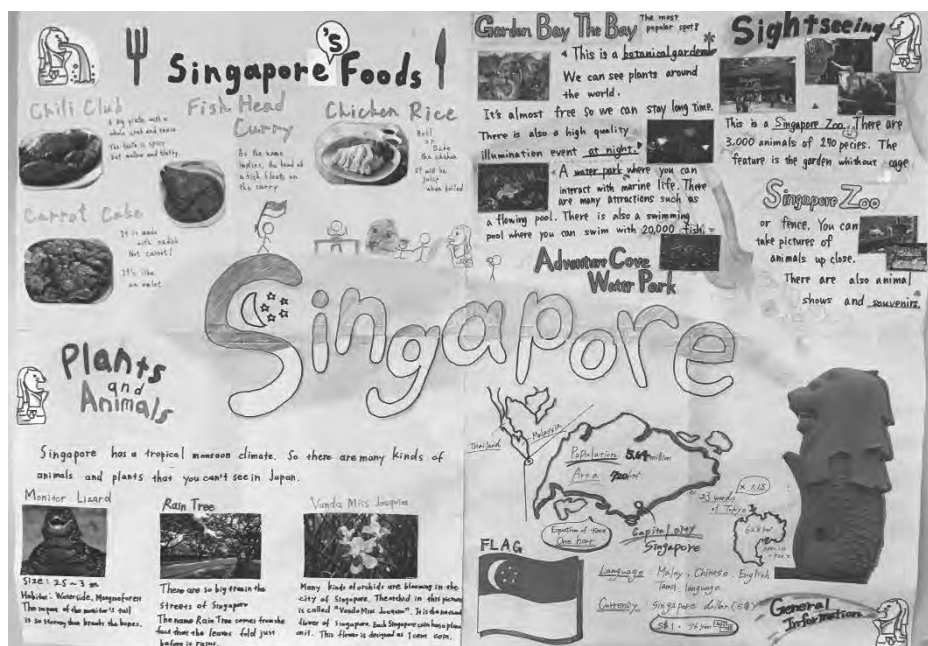 Singapore's Foods
Chili Club
A big plate with a
whole crab and sauce
The taste is spicy
but mellow and
Fish Head
Curry
As the name
implies, the head of
a fish floats on
the curry
Chicken Rice
Boil
or
Bake
the chicken
It will be
juicy
when boiled
Carrot Cake
It is made
with radish
Not carrot!
It's like
an omlet
Garden Bay The Bay
The most
popular spot!
This is a botanical garden
We can see plants around
the world.
It's almost free so we can stay long time.
There is also a high quality
illumination event at night.
A water park where you can
interact with marine life. There
are many attractions such as
a flowing pool. There is also a swimming
pool where you can swim with 20,000 fish!
Adventure Cove
Water Park
Sightseeing
This is a Singapore Zoo. There are
3,000 animals of 240 pecies. The
feature is the garden whithout cage
Singapore Zoo
or fence. You can
take pictures of
animals up close.
There are also animal
shows and souvenirs.
Singapore
Plants
and
Animals
Singapore has a tropical monsoon climate. So there are many kinds of
animals and plants that you can't see in Japan.
Monitor Lizard
Size: 2.5~3m
Habitat: Waterside, Mangroforest
The impact of the monitor's tail
is so strong that breaks the bones.
Rain Tree
There are so big tree in the
streets of Singapore
The name Rain Tree comes from the
fact that the leaves fold just
before it rains.
Vanda Miss Joaquim
Many kinds of orchids are blooming in the
city of Singapore. The orchid in this picture
is called "Vanda Miss Joaquim". It is the national
flower of Singapore. Each Singapore coin has a plant
on it. This flower is designed as 1 cent coin.
Thailand
Malaysia
Population 5.64 million
Area 720 km²
Equation of time
One hour
Capital city
Singapore
23 wards
of Tokyo
× 1.15
FLAG
Language Maley, Chinese, English
Tamil language
Currency Singapore dollar (S$)
S$1 = 96 yen
General
Information